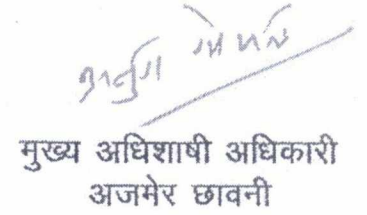 मुख्य अधिशाषी अधिकारी
अजमेर छावनी